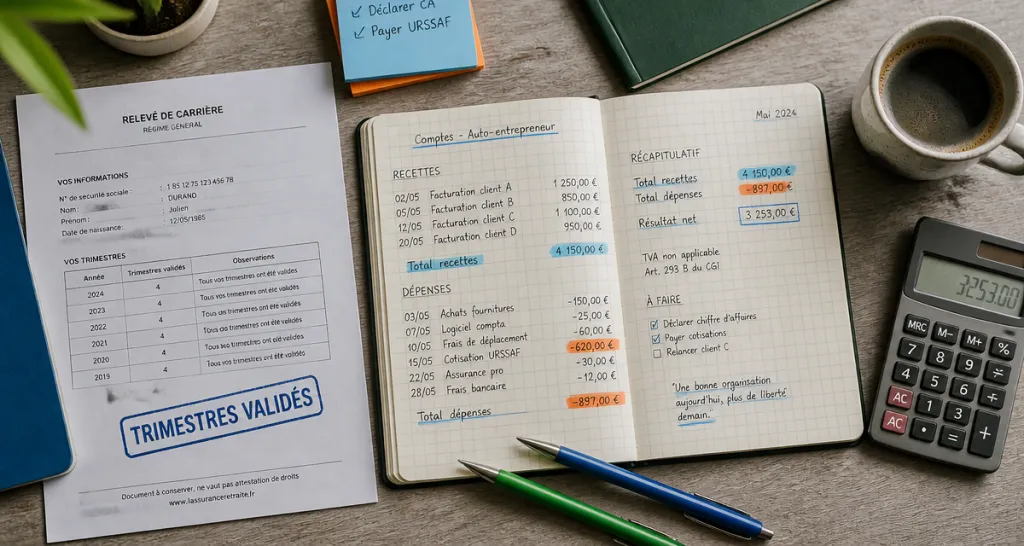 RELEVÉ DE CARRIÈRE
RÉGIME GÉNÉRAL
VOS INFORMATIONS
N° de sécurité sociale : 1 85 12 75 123 456 78
Nom : DURAND
Prénom : Julien
Date de naissance : 12/05/1985
VOS TRIMESTRES
Année Trimestres validés Observations
2024 4 Tous vos trimestres ont été validés
2023 4 Tous vos trimestres ont été validés
2022 4 Tous vos trimestres ont été validés
2021 4 Tous vos trimestres ont été validés
2020 4 Tous vos trimestres ont été validés
2019 4 Tous vos trimestres ont été validés
TRIMESTRES VALIDÉS
Document à conserver, ne vaut pas attestation de droits
www.lassuranceretraite.fr
Déclarer CA
Payer URSSAF
Comptes - Auto-entrepreneur
RECETTES
02/05 Facturation client A 1 250,00 €
05/05 Facturation client B 850,00 €
12/05 Facturation client C 1 100,00 €
20/05 Facturation client D 950,00 €
Total recettes 4 150,00 €
DÉPENSES
03/05 Achats fournitures -150,00 €
07/05 Logiciel compta -25,00 €
10/05 Frais de déplacement -60,00 €
15/05 Cotisation URSSAF -620,00 €
22/05 Assurance pro -30,00 €
28/05 Frais bancaire -12,00 €
Total dépenses -897,00 €
Mai 2024
RÉCAPITULATIF
Total recettes 4 150,00 €
Total dépenses -897,00 €
Résultat net 3 253,00 €
TVA non applicable
Art. 293 B du CGI
À FAIRE
Déclarer chiffre d'affaires
Payer cotisations
Relancer client C
"Une bonne organisation
aujourd'hui, plus de liberté
demain."
3253.00
MRC M- M+ %
7 8 9 ÷
4 5 6 +
AC 1 3 +
AC • =